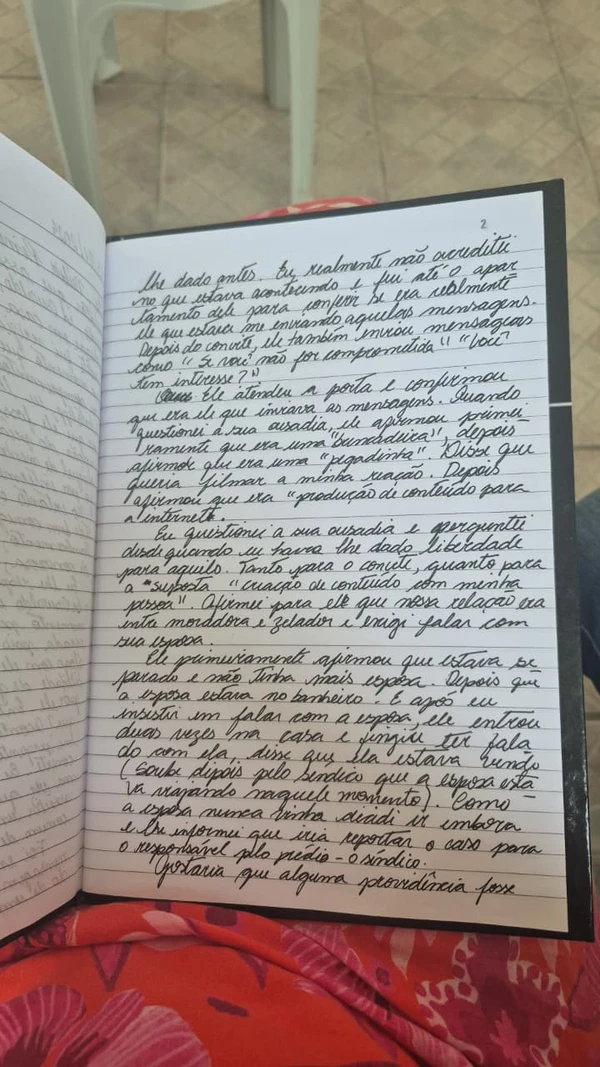 2
lhe dado antes. Eu realmente não acreditei
no que estava acontecendo e fui até o apar
tamento dele para conferir se era realmente
ele que estava me enviando aquelas mensagens.
Depois do convite, ele também enviou mensagens
como "Se você não for comprometida" "Você
tem interesse?"
Ele atendeu a porta e confirmou
que era ele que enviava as mensagens. Quando
questionei a sua ousadia, ele afirmou primei
ramente que era uma "brincadeira", depois
afirmou que era uma "pegadinha". Disse que
queria filmar a minha reação. Depois
afirmou que era "produção de conteúdo para
a internet".
Eu questionei a sua ousadia e perguntei
desde quando eu havia lhe dado liberdade
para aquilo. Tanto para o convite, quanto para
a "suposta "criação de conteúdo com minha
pessoa". Afirmei para ele que nossa relação era
entre moradora e zelador e exigi falar com
sua esposa.
Ele primeiramente afirmou que estava se
parado e não tinha mais esposa. Depois que
a esposa estava no banheiro. E após eu
insistir em falar com a esposa, ele entrou
duas vezes na casa e fingiu ter fala
do com ela, disse que ela estava vendo
(Soube depois pelo síndico que a esposa esta
va viajando naquele momento). Como
a esposa nunca vinha decidi ir embora
e lhe informei que iria reportar o caso para
o responsável pelo prédio - o síndico.
Gostaria que alguma providência fosse